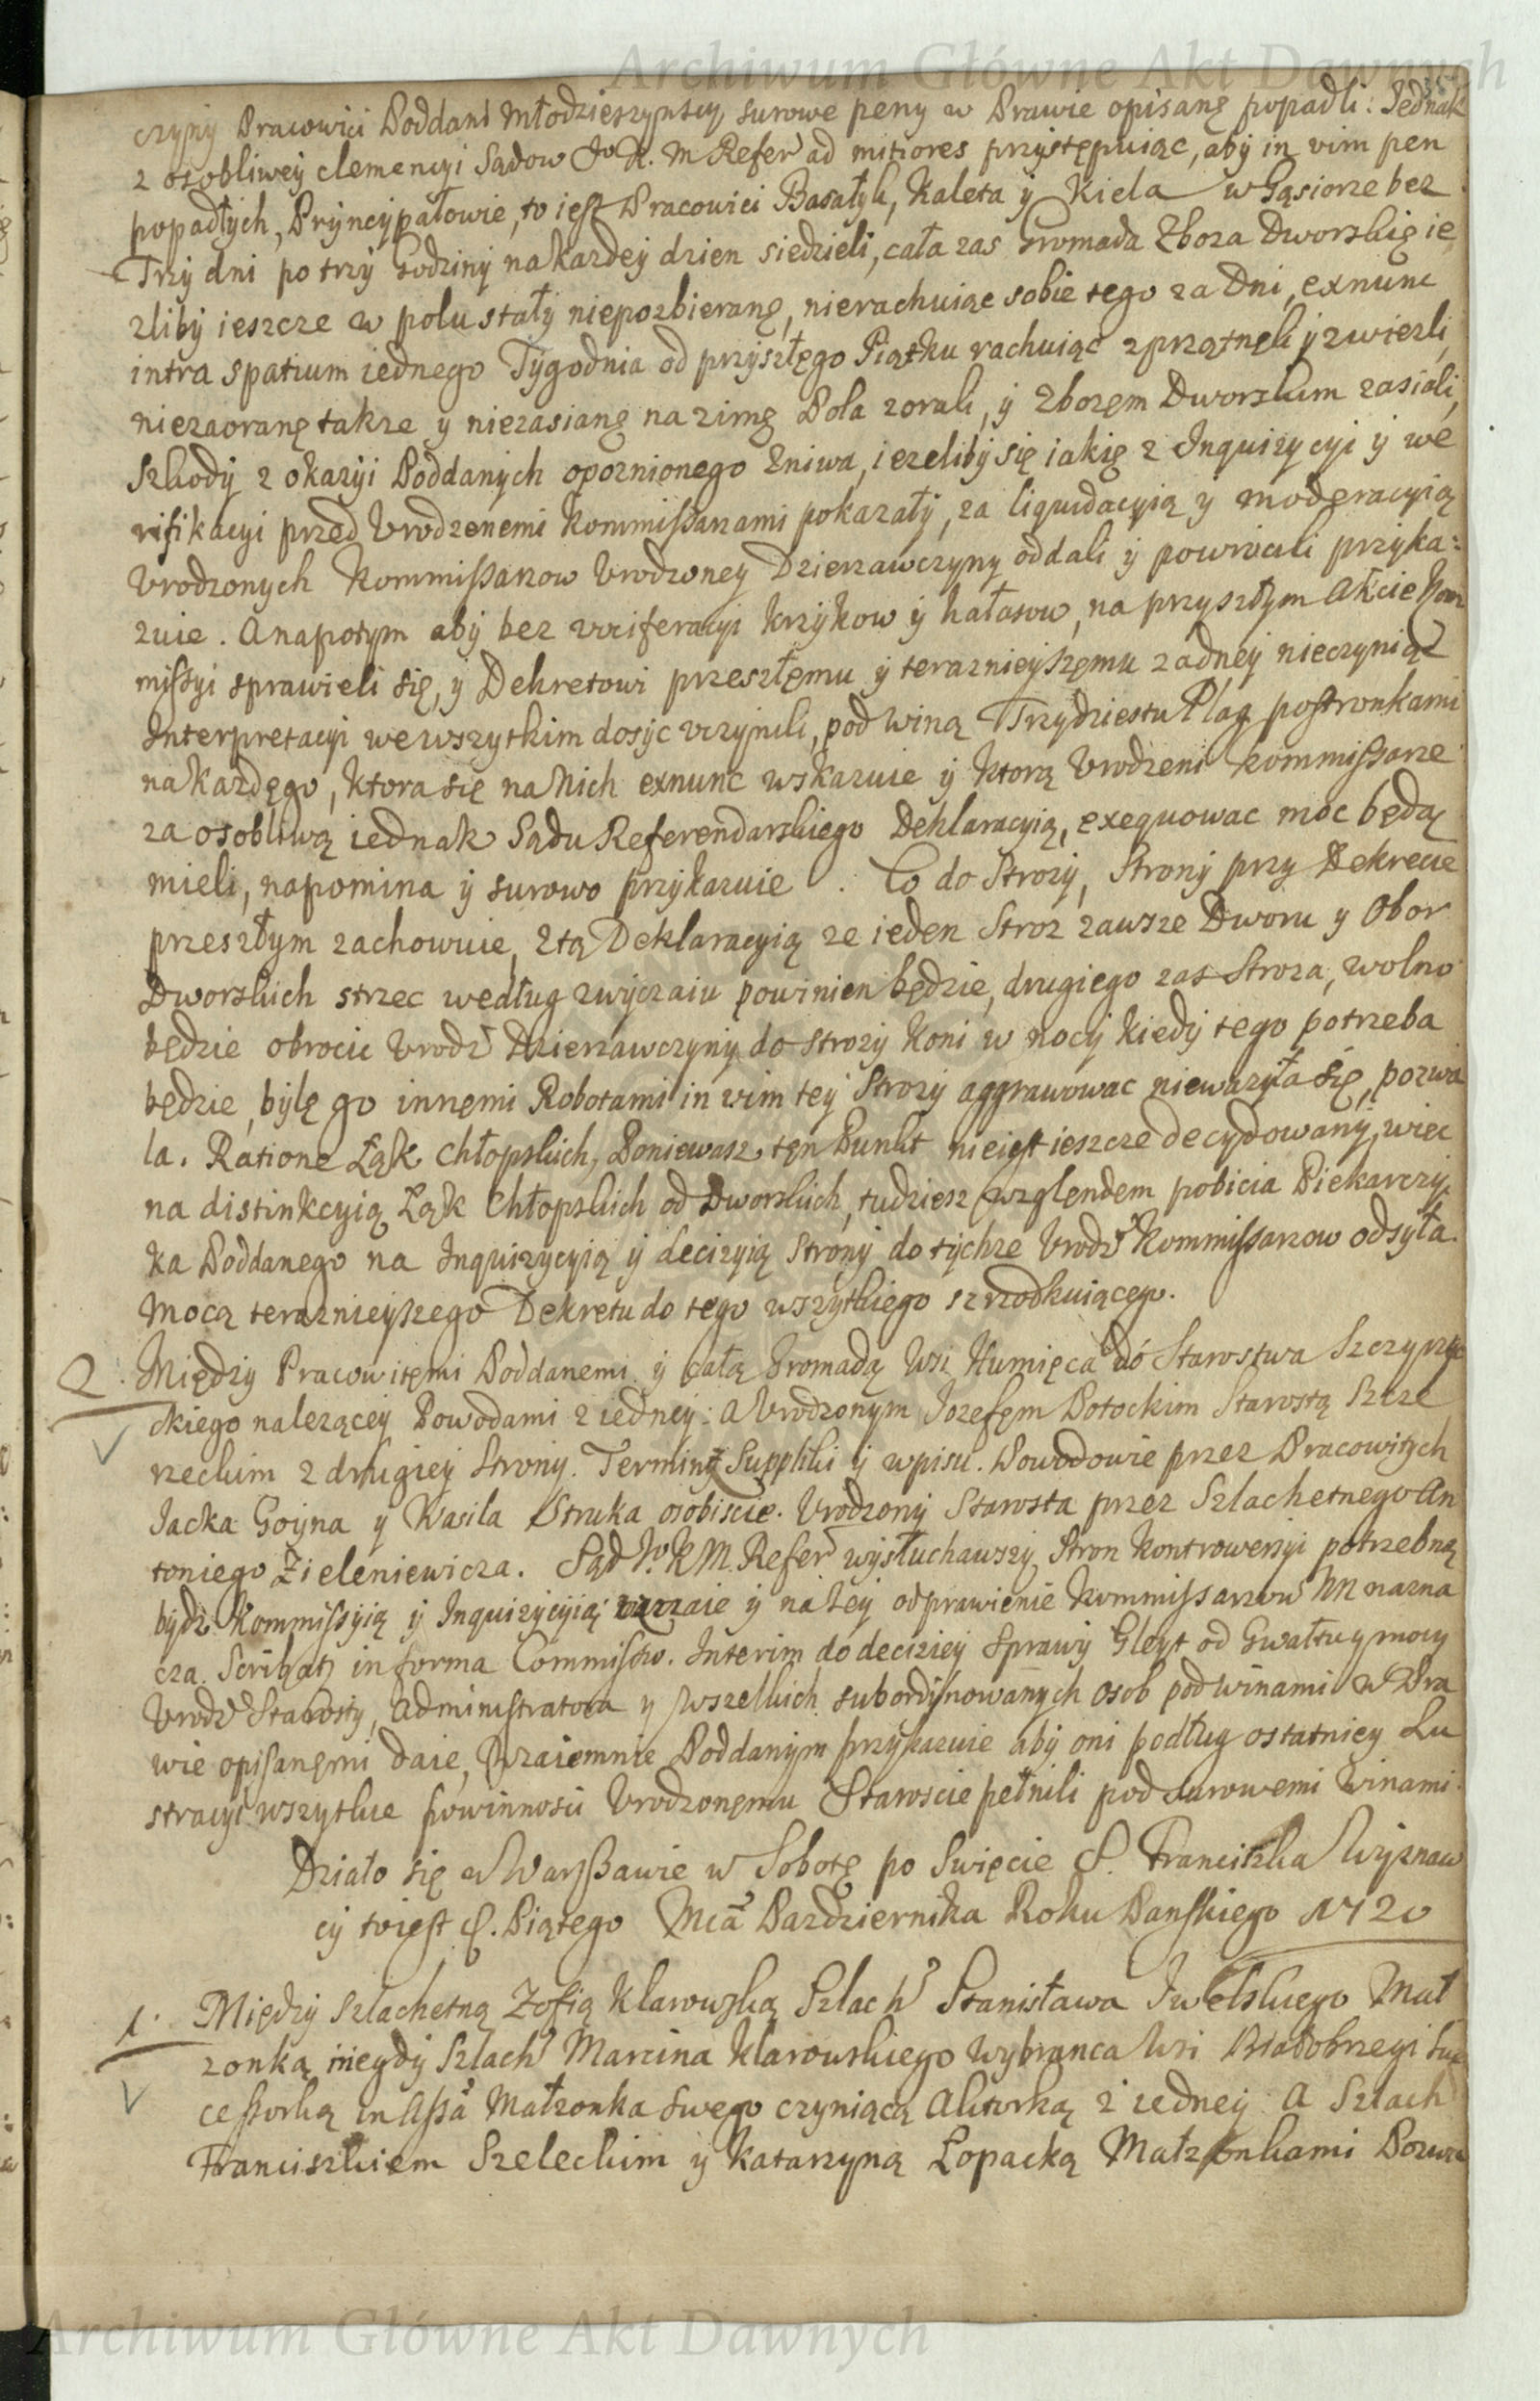 Archiwum Główne Akt Dawnych
czyny Pracowici Poddani Młodzieszynscy, surowe peny w Prawie opisane popadli: Jednak
z osobliwey clemencyi Sądow Jo K. M Refer ad mitiores przystępuiąc, aby in vim pen
popadłych, Pryncypałowie, to iest Pracowici Basałyk, Kaleta y Kiela w Gąsiorze bez
Trzy dni po trzy Godziny na kazdey dzien siedzieli, cała zas Gromada Zboza Dworskię ie
zliby ieszcze w polu stały niepozbieranę, nierachuiąc sobie tego za Dni, exnunc
intra spatium iednego Tygodnia od przyszłego Piątku rachuiąc zprzątnęli y zwiezli,
niezaoranę takze y niezasianę na zimę Pola zorali, y Zbozęm Dworskim zasiali,
Szkody z okazyi Poddanych opoznionego Zniwa, iezeliby się iakię z Inquizycyi y we
rifikacyi przed Urodzenemi Kommissarzami pokazały, za liquidacyią y moderacyią
Urodzonych Kommissarzow Urodzoney Dzierzawczyny oddali y powrocili przyka:
zuie. A napotym aby bez vociferacyi krzykow y hałasow, na przyszłym Akcie Kom
missyi sprawieli się, y Dekretowi przeszłęmu y teraznieyszęmu zadney nieczyniąc
Interpretacyi we wszytkim dosyc uczynili, pod winą Trzydziestu Plag postronkami
na kazdęgo, ktora się na Nich exnunc wskazuie y ktorą Urodzeni Kommissarze
za osobliwą iednak Sądu Referendarskiego Deklaracyią, exequowac moc będą
mieli, napomina y surowo przykazuie. Co do Strozy, Strony przy Dekrecie
przeszłym zachowuie, z tą Deklaracyią ze ieden Stroz zawsze Dworu y Obor
Dworskich strzec według zwyczaiu powinien będzie, drugiego zas Stroza, wolno
będzie obrocic Urodz Dzierzawczyny do strozy Koni w nocy kiedy tego potrzeba
będzie, bylę go innęmi Robotami in vim tey Strozy aggrawowac niewazyła się, pozwa
la. Ratione Łąk Chłopskich, Poniewasz tęn Punkt nieiest ieszcze decydowany, więc
na distinkcyią Łąk Chłopskich od Dworskich, tudziesz względem pobicia Piekarczy
ka Poddanego na Inquizycyią y decizyią Strony do tychze Urodz Kommissarzow odsyła.
Mocą teraznieyszego Dekretu do tego wszytkiego szrzodkuiącego.
2. Między Pracowitęmi Poddanemi y całą Gromadą Wsi Humięca do Starostwa Szczyrzy
ckiego nalezącey Powodami z iedney: A Urodzonym Jozefęm Potockim Starostą Szcze
rzeckim z drugiey Strony. Terminy Suppliki y wpisu. Powodowie przez Pracowitych
Jacka Goyna y Wasila Struka osobiscie. Urodzony Starosta przez Szlachetnego An
toniego Zieleniewicza. Sąd Jo K M. Refer wysłuchawszy Stron Kontrowersyi potrzebną
bydz Kommissyią y Inquizycyią uznaie y na Iey odprawienie Kommissarzow NN nazna
cza. Scribat in forma Commissor. Interim do deciziey Sprawy Gleyt od Gwałtu y mocy
Urodz Starosty, Administratora y wszelkich subordinowanych osob pod winami w Pra
wie opisanęmi daie, Wzaiemnie Poddanym przykazuie aby oni podług ostatniey Lu
stracyi wszytkie powinnosci Urodzonęmu Staroscie pełnili pod surowemi Winami.
Działo się w Warszawie w Sobotę po Swięcie S. Franciszka Wyznaw
cy toiest d. Piątego Mca Pazdziernika Roku Panskiego 1720
1. Między Szlachetną Zofią Klarowską Szlach Stanisława Iwelskiego Mał
zonką niegdy Szlach Marcina Klarowskiego Wybranca Wsi Białobrzegi Suk
cessorką in Assa Małzonka swego czyniącą Aktorką z iedney A Szlach
Franciszkiem Szeleckim y Katarzyną Łopacką Małzonkami Pozwa
Archiwum Główne Akt Dawnych